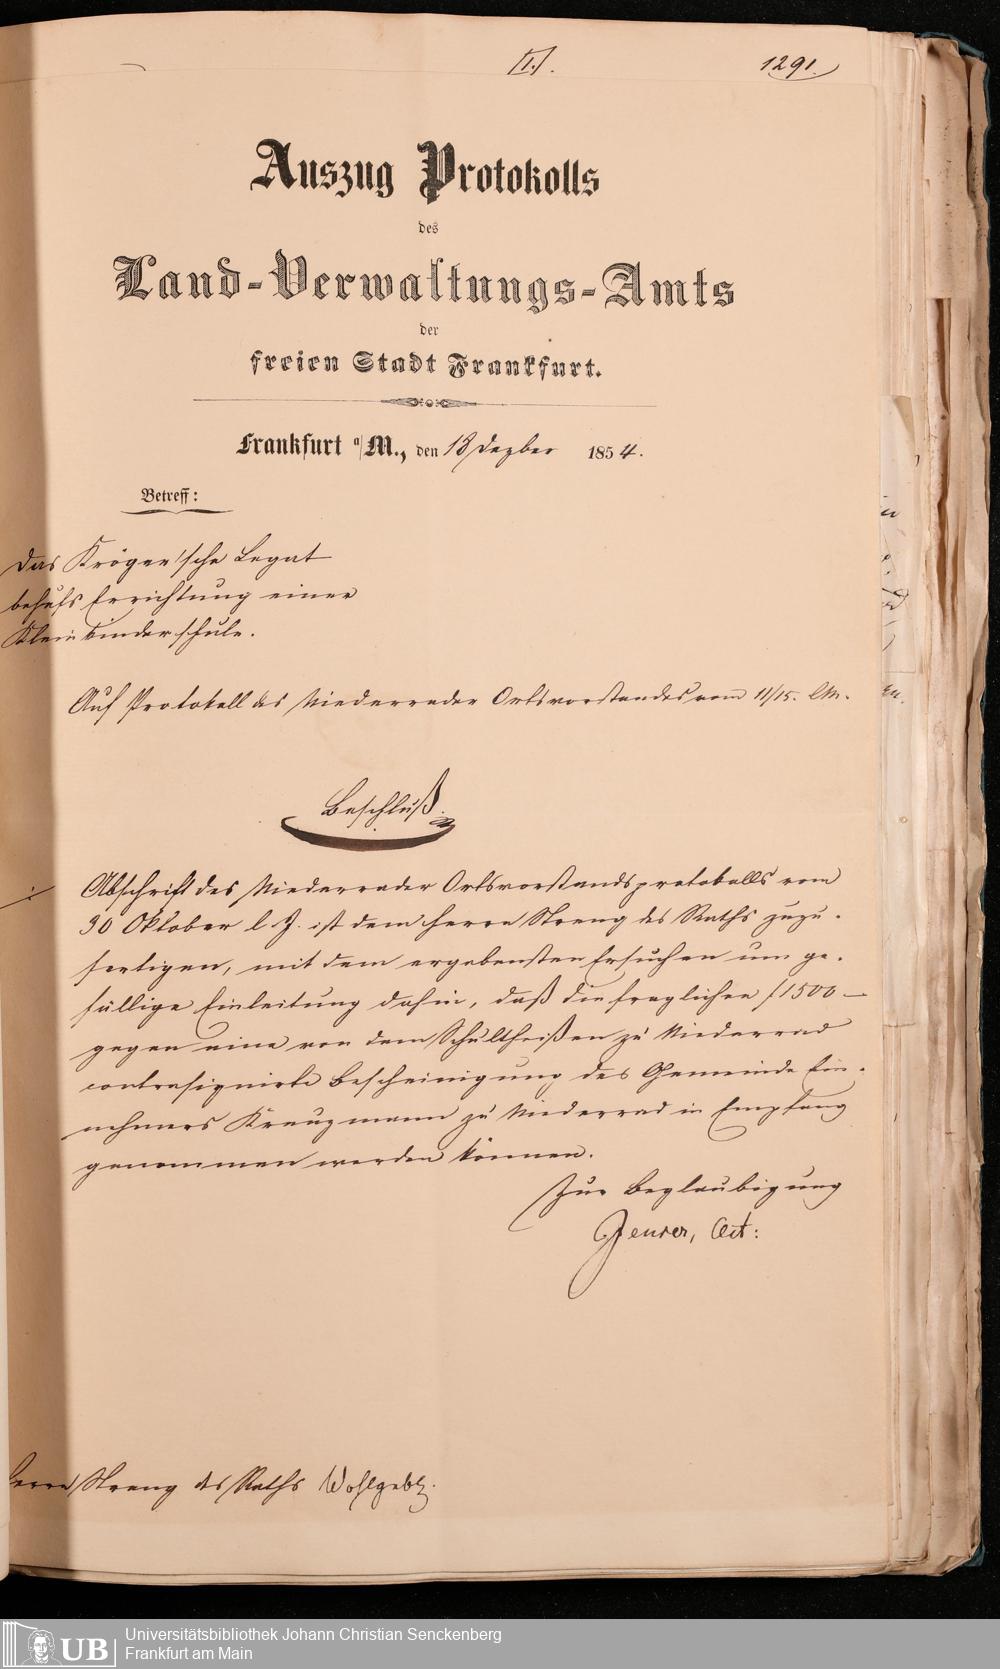 1291.
Auszug Protokolls
des
Land-Verwaltungs-Amts
der
freien Stadt Frankfurt.
Frankfurt a/M., den 18 Dezber 1854.
Betreff:
Das Kröger'sche Legat
behufs Errichtung einer
Kleinkinderschule.
Auf Protokoll des Niederräder Ortsvorstandes vom 11/15. l. M.
Beschluß.
Abschrift des Niederräder Ortsvorstandsprotokolls vom
30 Oktober l. J. ist dem Herrn Streng des Raths zuzu-
fertigen, mit dem ergebensten Ersuchen um ge-
fällige Einleitung dahin, daß die fraglichen f 1500 —
gegen eine von dem Schultheißen zu Niederrad
contrasignirte Bescheinigung des Gemeinde Ein-
nehmers Kreuzmann zu Niederrad in Empfang
genommen werden können.
Zur Beglaubigung
Act:
Herrn Streng des Raths Wohlgeb.
UB Universitätsbibliothek Johann Christian Senckenberg
Frankfurt am Main